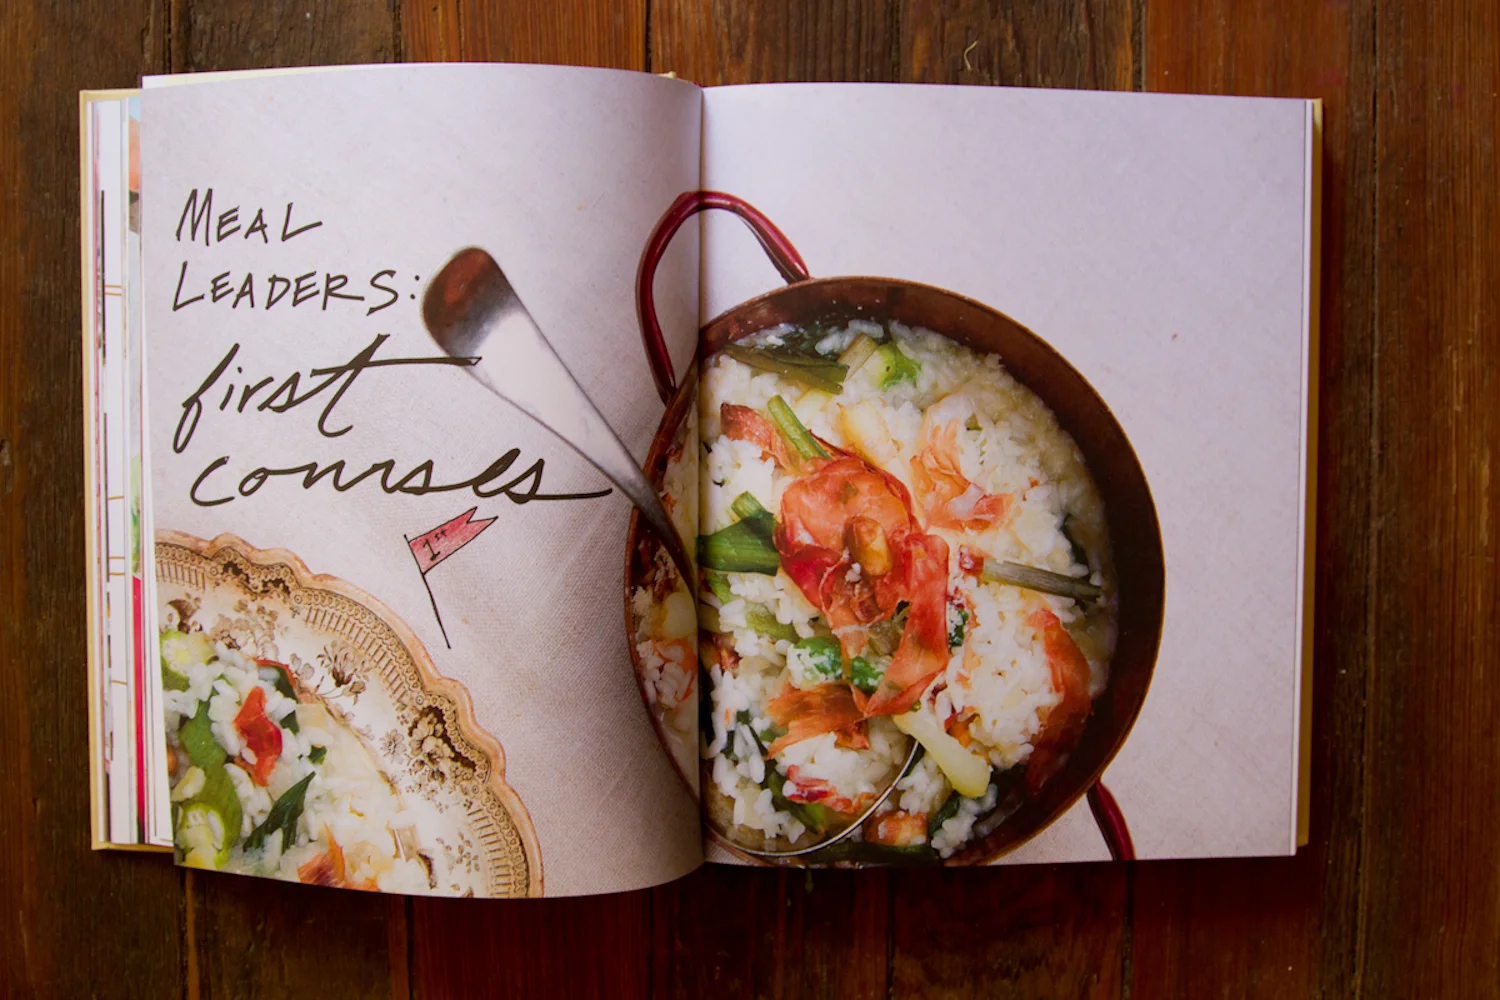 MEAL
LEADERS:
first
courses
1st